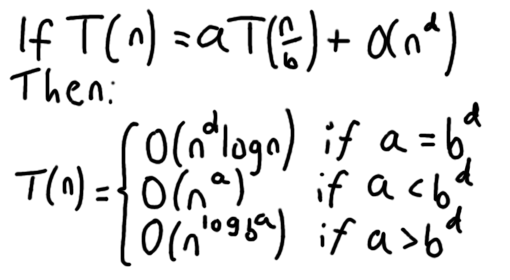 If T(n) = aT(n/b) + O(n^d)
Then:
T(n) = { O(n^d logn) if a = b^d
O(n^a) if a < b^d
O(n^(log_b a)) if a > b^d